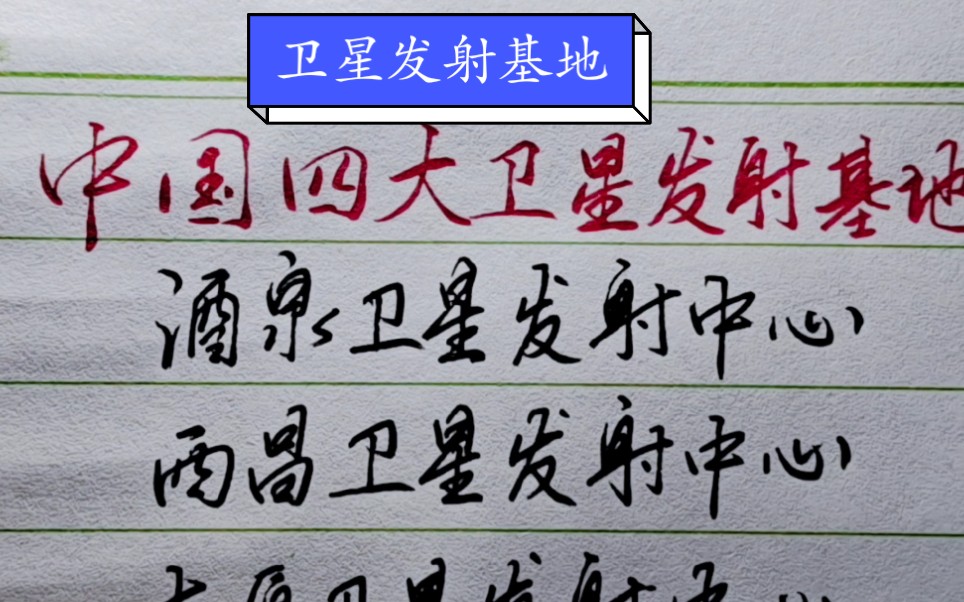 卫星发射基地
中国四大卫星发射基地
酒泉卫星发射中心
西昌卫星发射中心
卫星发射中心